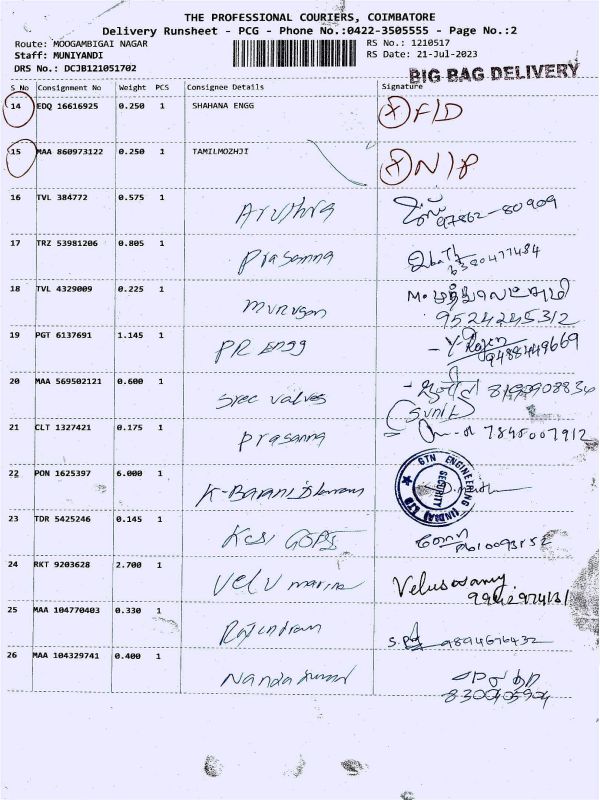 THE PROFESSIONAL COURIERS, COIMBATORE
Delivery Runsheet - PCG - Phone No.:0422-3505555 - Page No.:2
Route: MOOGAMBIGAI NAGAR
RS No.: 1210517
Staff: MUNIYANDI
RS Date: 21-Jul-2023
DRS No.: DCJB121051702
BIG BAG DELIVERY
S No Consignment No Weight PCS Consignee Details Signature
14 EDQ 16616925 0.250 1 SHAHANA ENGG X F/D
15 MAA 860973122 0.250 1 TAMILMOZHJI X N/P
16 TVL 384772 0.575 1 Aruthra
97862-80909
17 TRZ 53981206 0.805 1 Prasanna
6380477484
18 TVL 4329009 0.225 1 murugan
9524245312
19 PGT 6137691 1.145 1 PR Engg
9488449669
20 MAA 569502121 0.600 1 Sree valves 8190908834
(Sunil)
21 CLT 1327421 0.175 1 Prasanna 7845007912
22 PON 1625397 6.000 1
GTN ENGINEERING (INDIA) LTD
SECURITY
23 TDR 5425246 0.145 1
24 RKT 9203628 2.700 1 Velu marine Veluswamy
25 MAA 104770403 0.330 1 Rajendran 9894676432
26 MAA 104329741 0.400 1 Nandakumar